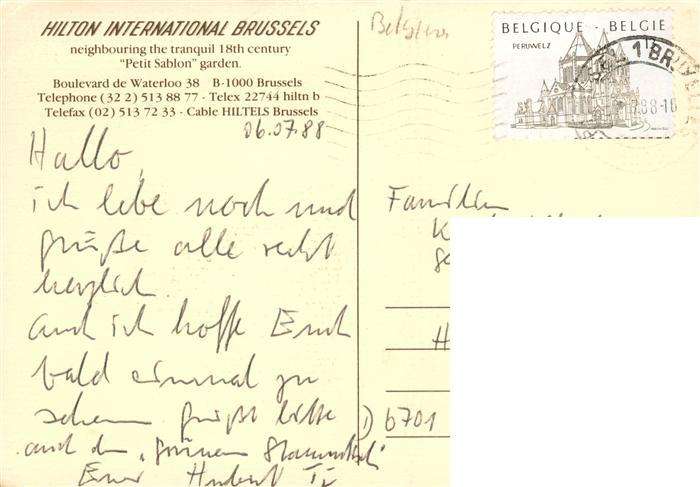 HILTON INTERNATIONAL BRUSSELS
neighbouring the tranquil 18th century
"Petit Sablon" garden.
Boulevard de Waterloo 38 B-1000 Brussels
Telephone (32 2) 513 88 77 · Telex 22744 hiltn b
Telefax (02) 513 72 33 · Cable HILTELS Brussels
06.07.88
Hallo,
ich lebe noch und
grüße alle recht
herzlich
und ich hoffe Euch
bald einmal zu
sehen grüßt bitte
auch den „grünen Stammtisch"
Euer Hubert
Belgien
BELGIQUE · BELGIE
PERUWELZ
1 BRU
88-16
Familien
K
H
D 6701